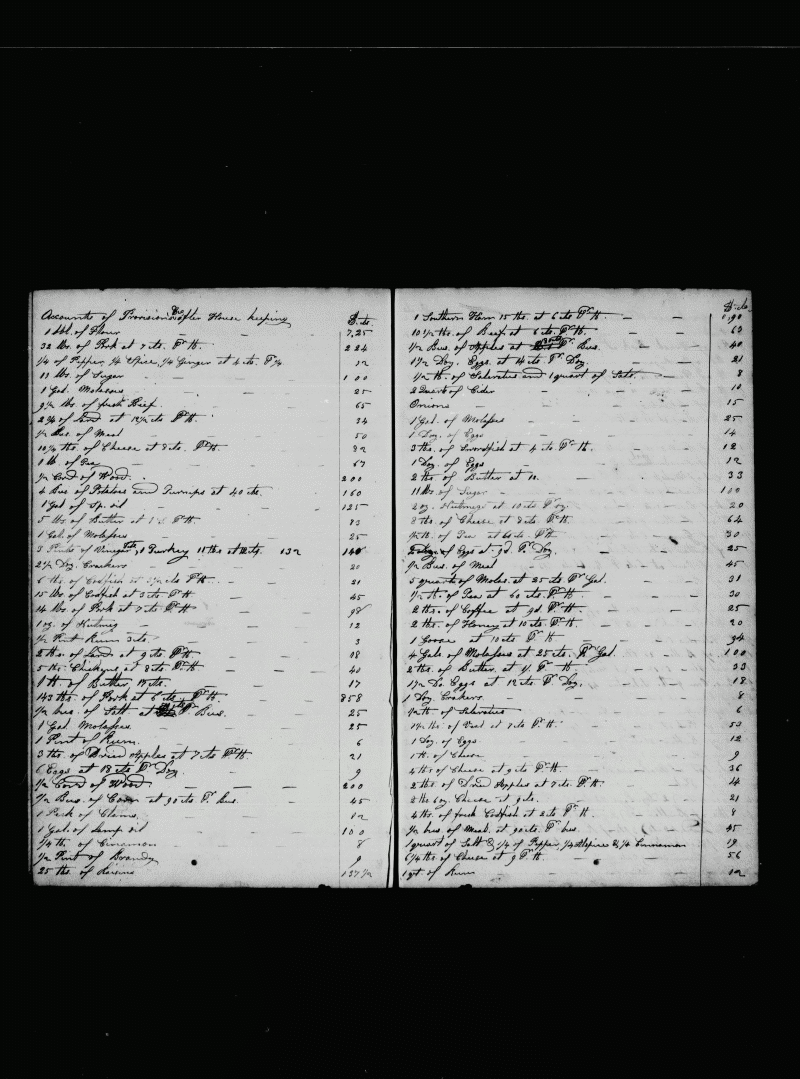 Accounts of Provisions &c after House keeping $. cts.
1 bbl. of Flour 7.25
32 lbs. of Pork at 7 cts. Pr lb. 2 24
1/4 of Pepper, 1/4 Spice, 1/4 Ginger at 4 cts. Pr 1/4 12
11 lbs of Sugar 1 00
1 Gal. Molasses 25
9 1/2 lbs. of fresh Beef 65
2 3/4 of Lard at 12 1/2 cts Pr lb. 34
1/2 Bus. of Meal 50
10 1/4 lbs. of Cheese at 8 cts. Pr lb. 82
1 lb. of Tea 67
1/2 Cord of Wood 2 00
4 Bus of Potatoes and Turnips at 40 cts. 1 60
1 Gal of Sp. oil 1 25
5 lbs of Butter at Pr lb 83
1 Gal. of Molasses 25
3 Pecks of Vinegar, 1 Turkey 11 lbs at 12 cts. 132
2 1/2 Doz. Crackers 20
6 lbs. of Codfish at 3 1/2 cts Pr lb 21
15 lbs of Codfish at 3 cts Pr lb 45
14 lbs of Pork at 7 cts Pr lb 98
1 oz. of Nutmeg 12
1/2 Pint Rum 3 cts. 3
2 lbs. of Lard at 9 cts. Pr lb. 18
5 lbs. Chickens at 8 cts. Pr lb. 40
1 lb of Butter, 17 cts. 17
143 lbs. of Pork at 6 cts. Pr lb 8 58
1/2 bus. of Salt at Pr Bus. 25
1 Gal. Molasses 25
1 Pint of Rum. 6
3 lbs. of Dried Apples at 7 cts Pr lb 21
6 Eggs at 18 cts Pr Doz. 9
1/2 Cord of Wood 2 00
1/2 Bus. of Corn at 90 cts Pr. Bus. 45
1 Peck of Clams, 12
1 Gal. of Lamp oil 1 00
1/4 lb. of Cinnamon 8
1/2 Pint of Brandy 9
25 lbs. of Raisins 1 37 1/2
$. cts.
1 Southern Ham 15 lbs. at 6 cts Pr lb 0.90
10 1/2 lbs. of Beef at 6 cts. Pr lb. 63
1/2 Bus. of Apples at Pr Bus. 40
1 1/2 Doz. Eggs at 14 cts Pr Doz 21
1/2 lb. of Salaratus and 1 quart of Salt 8
2 Quarts of Cider 10
Onions 15
1 Gal. of Molasses 25
1 Doz. of Eggs 14
3 lbs. of Swordfish at 4 cts Pr lb. 12
1 Doz. of Eggs 12
2 lbs. of Butter at 33
11 lbs of Sugar 1 00
2 oz. Nutmegs at 10 cts Pr oz. 20
8 lbs. of Cheese at 8 cts Pr lb. 64
1/2 lb. of Tea at 60 cts. Pr lb 30
of Eggs at Pr Doz. 25
1/2 Bus. of Meal 45
5 quarts of Molas. at 25 cts Pr Gal. 31
1/2 lb. of Tea at 60 cts. Pr lb 30
2 lbs. of Coffee at Pr lb. 25
2 lbs. of Honey at 10 cts. Pr lb. 20
1 Goose at 10 cts Pr lb 94
4 Gals of Molasses at 25 cts. Pr Gal. 1 00
2 lbs. of Butter. at Pr lb 33
1 1/2 Do. Eggs at 12 cts Pr Doz. 18
1 Doz Crackers 8
1/2 lb of Salaratus 6
lbs. of Veal at 7 cts Pr lb 53
1 Doz. of Eggs 12
1 lb. of Cheese 9
4 lbs of Cheese at 9 cts. Pr lb. 36
2 lbs. of Dried Apples at 7 cts. Pr lb. 14
2 lbs 6 oz. Cheese at 9 cts. 21
4 lbs. of fresh Codfish at 2 cts Pr lb. 8
1/2 bus. of Meal. at 90 cts. Pr bus. 45
1 quart of Salt & 1/4 of Pepper, 1/4 Alspice & 1/4 Cinnamon 19
6 1/4 lbs of Cheese at 9 Pr lb. 56
1 qt. of Rum 12